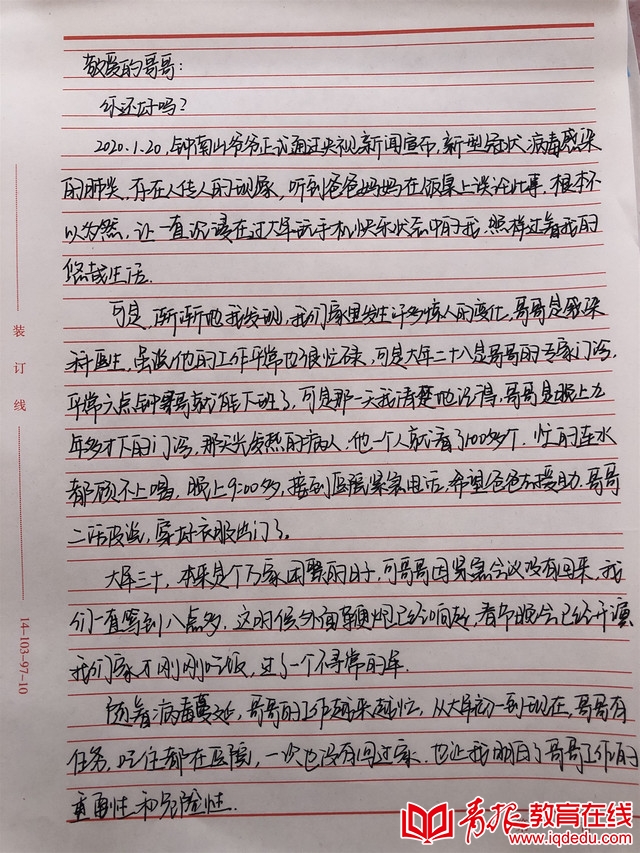 敬爱的哥哥：
你还好吗？
2020.1.20，钟南山爷爷正式通过央视新闻宣布，新型冠状病毒感染
的肺炎，存在人传人的现象，听到爸爸妈妈在饭桌上谈论此事，根本不
以为然，让一直沉浸在过大年玩手机快乐状态中的我，照样过着我的
悠哉生活.
可是，渐渐地我发现，我们家里发生许多惊人的变化，哥哥是感染
科医生，虽说他的工作平常也很忙碌，可是大年二十八是哥哥的专家门诊，
平常六点钟哥哥就能下班了，可是那一天我清楚地记得，哥哥是晚上九
点多才下的门诊，那天光发热的病人，他一个人就看了100多个，忙的连水
都顾不上喝，晚上9:00多，接到医院紧急电话，希望爸爸援助，哥哥
二话没说，穿好衣服出门了。
大年三十，本来是个万家团聚的日子，可哥哥因紧急会议没有回来，我
们一直等到八点多，这时候外面鞭炮已经响起，春节晚会已经开演
我们家才刚刚吃饭，过了一个不寻常的年.
随着病毒蔓延，哥哥的工作越来越忙，从大年初一到现在，哥哥有
任务，吃住都在医院，一次也没有回过家.也让我明白了哥哥工作的
重要性和危险性.
装订线
14-103-97-10
青报教育在线
www.iqdedu.com